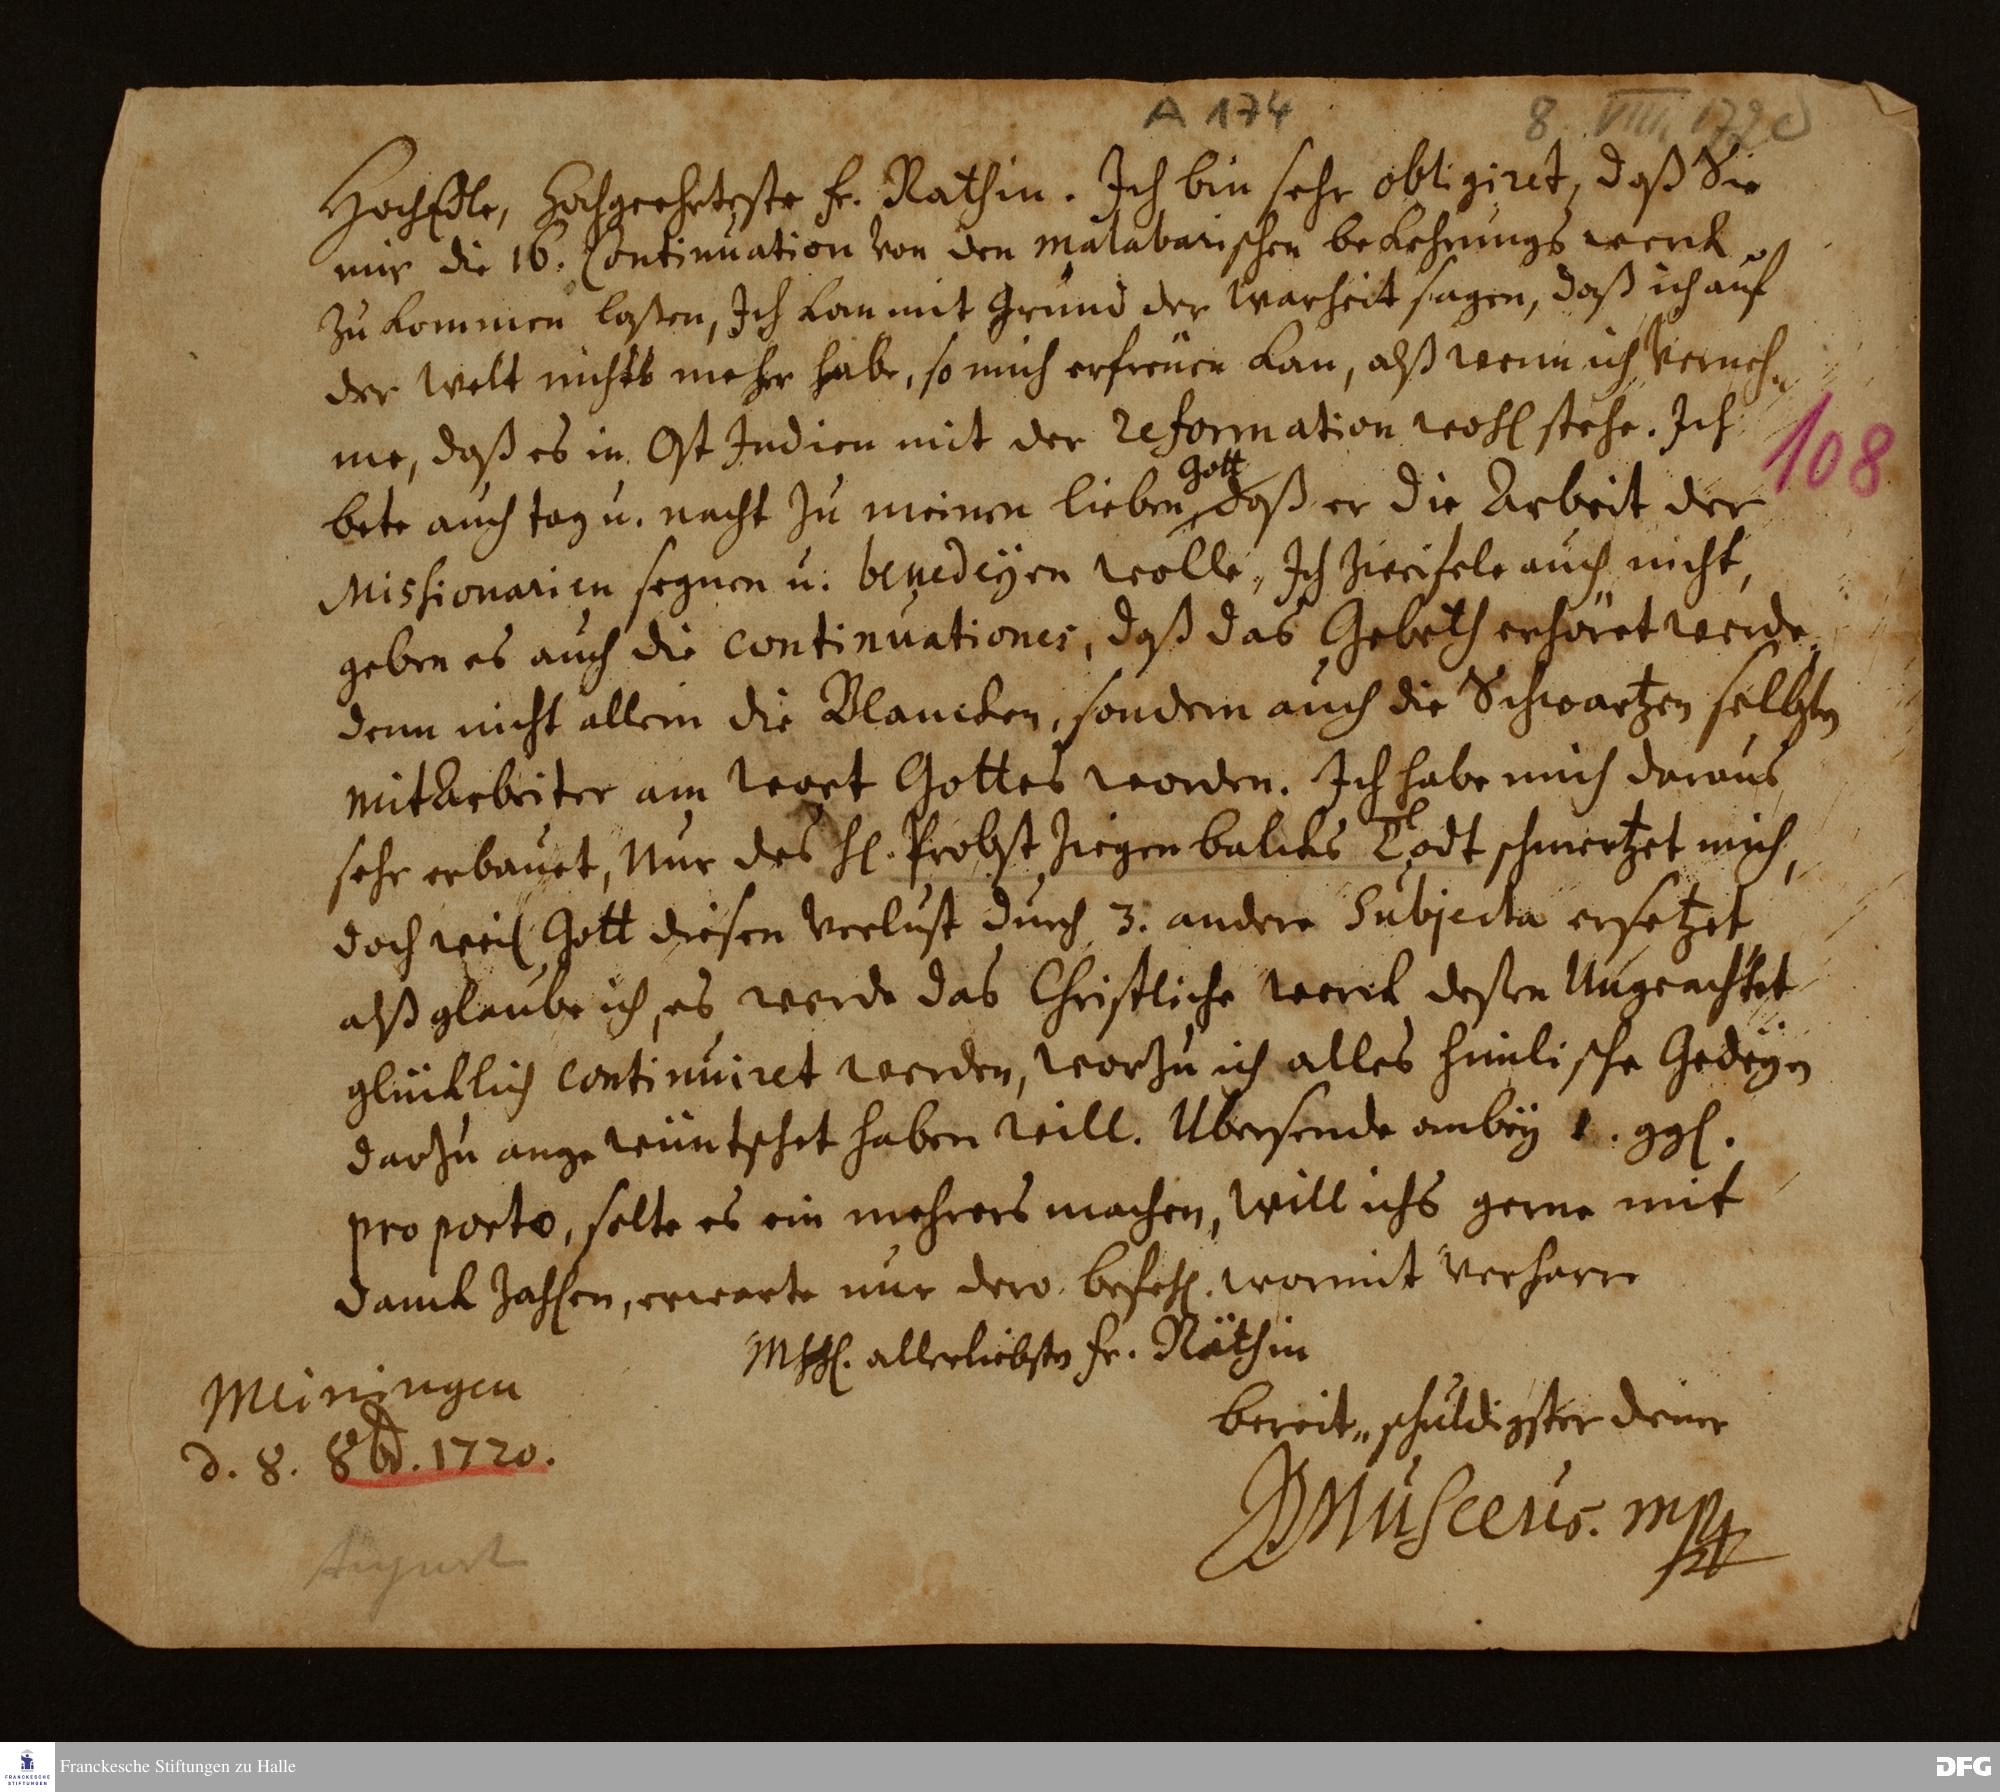 A 174
8. VIIII. 1720
HochEdle, Hochgeehrteste fr. Räthin. Ich bin sehr obligiret, daß Sie
mir die 16. Continuation von den malabarischen bekehrungs werck
zu kommen laßen, Ich kan mit Grund der Warheit sagen, daß ich auf
der Welt nichts meher habe, so mich erfreüen kan, alß wenn ich Verneh-
me, daß es in Ost Indien mit der reformation wohl stehe. Ich
108
bete auch tag u. nacht zu meinen lieben Gott daß er die Arbeit der
Missionarien segnen u. benedeyen wolle, Ich zweifele auch nicht,
geben es auch die continuationes, daß das Gebeth erhöret werde,
denn nicht allein die Blancken, sondern auch die Schwartzen selbsten
mitArbeiter am wort Gottes worden. Ich habe mich daraus
sehr erbauet, Nur des H. Probst Ziegenbalcks Todt schmertzet mich,
doch weil Gott diesen Verlust durch 3. andere Subjecta ersetzet
alß glaube ich, es werde das Christliche werck deßen Ungeachtet
glücklich continuiret werden, worzu ich alles himlische Gedeyen
darzu angewüntschet haben will. Übersende anbey 1. ggl.
pro porto, solte es ein mehrers machen, will ichs gerne mit
danck zahlen, erwarte nur dero befehl. wormit Verharre
allerliebsten fr. Räthin
Meiningen
d. 8. 8bd. 1720.
bereit-schuldigster diener
Musaeus. mpp
August
Franckesche Stiftungen zu Halle
FRANCKESCHE
STIFTUNGEN
DFG